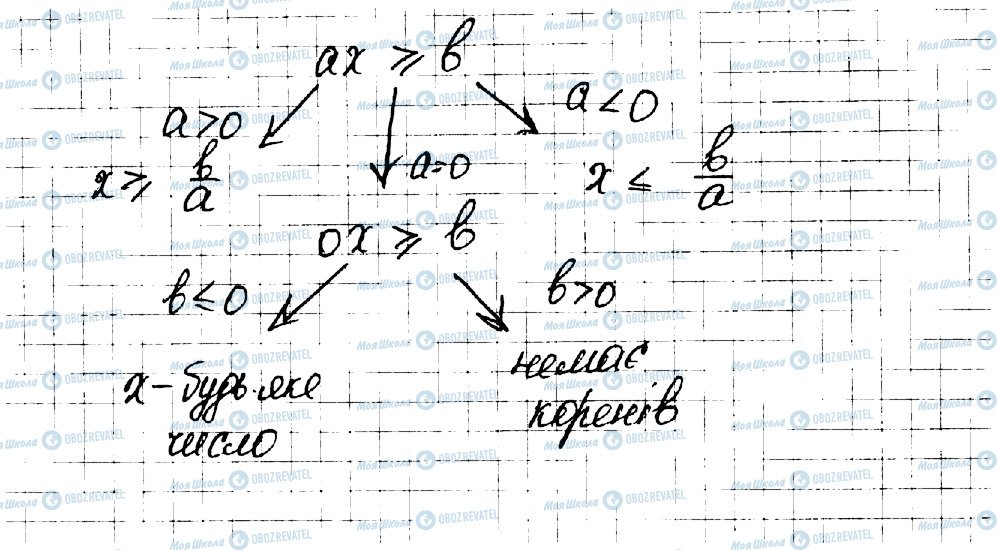 ax ⩾ b
a>0
a<0
x⩾ b/a
a=0
x ≤ b/a
0x ⩾ b
b≤0
b>0
x – будь-яке
число
немає
коренів
МояШкола OBOZREVATEL